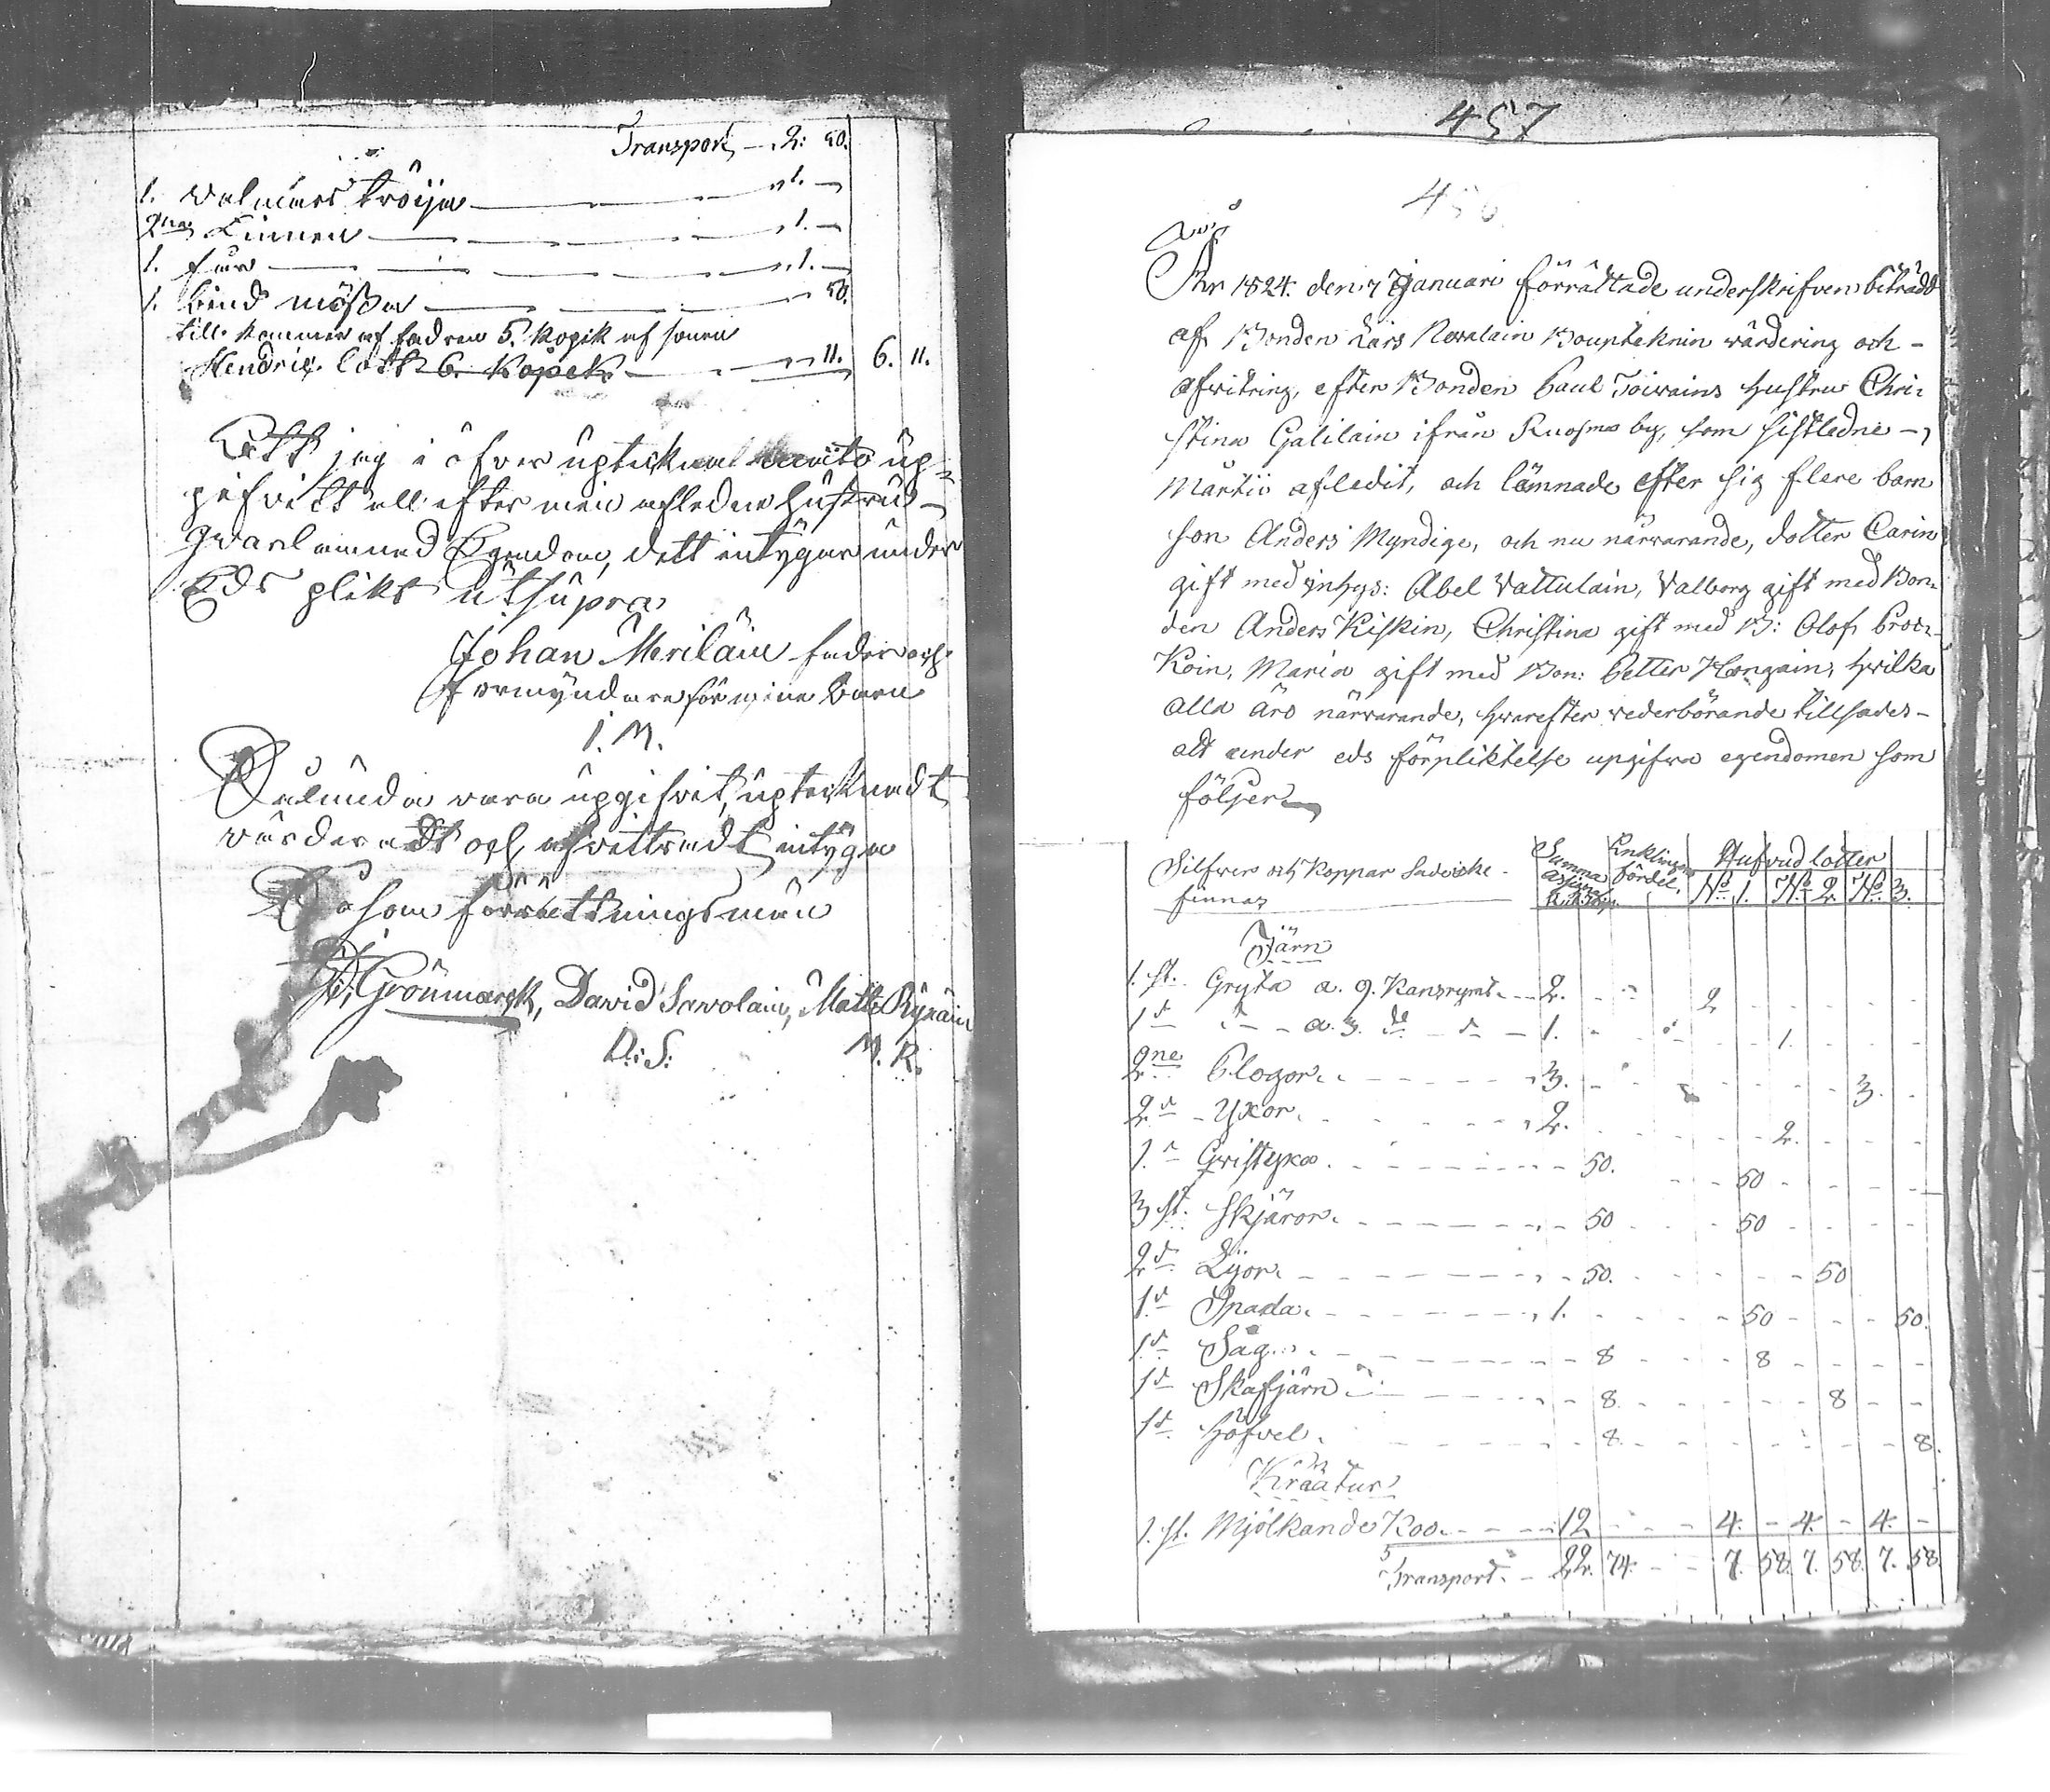 Transport, - 2: 50.
1. walmars tröija - 1. -
2ne Linnen - 1. -
1. fur - 1. -
1. bind mössa - 50.
till kommer af fadren 5. kopek af sonen
Hendric. lott 6. Kopek - 11. 6. 11.
Att jag i öfver uptecknat upp-
gifvitt all efter min afledne hustru
qvarlemned Egendom, dett intygar under
Eds plikt ut supra
Johan Meriläin fader och
formyndare för mine Barn
I. M.
Sålunda vara upgifvit, uptecknadt
värderadt och afvittradt, intyga
Såsom förrättningsmän
Grönmarck, David Savolain, Matts Rÿnäin
D: S: M. R.
457
456
År 1824. den 7 Januari förrättade underskrifven biträdd
af Bonden Lars Boupteknin wärdering och -
afwitring, efter Bonden Paul Toiwains hustru Chri-
stina Galilain ifrån Ruosma by, som sistledne -
Martii afledit, och lämnade efter sig flere barn
son Anders Myndige, och nu närwarande, dotter Carin
gift med ynhys: Abel Vattulain, Valborg gift med Bon-
den Anders Kiskin, Christina gift med B: Olof Pror-
koin, Maria gift med Bon: Petter Hongain, hwilka
alla äro närwarande, hwarefter wederbörande tillsades -
att under eds förpliktelse upgifwa egendomen som
följer
Silfwer och Koppar Saker icke - Summa Enklingens fördel. Hufvud lotter
finnas No 1. No 2. No 3.
Järn
1. st. Gryta a. 9. Kansrymt. - 2. - 2
1 d - a. 3. do - 1. - 1.
2ne Plogor. - 3. - 3.
2 d - Yxor. - 2. - 2.
1. Gristyxa. - 50. - 50
3 st. Skjäror. - 50 - 50
2 d Lijor. - 50. - 50
1 d Spada. - 1. - 50 - 50.
1 d Såg. - 8 - 8
1 d Skafjärn - 8. - 8
1 d Höfvel. - 8. - 8.
Kräatur
1. st. Mjölkande Koo. - 12 - 4. - 4. - 4. -
Transport. - 22. 74. - 7. 58. 7. 58. 7. 58